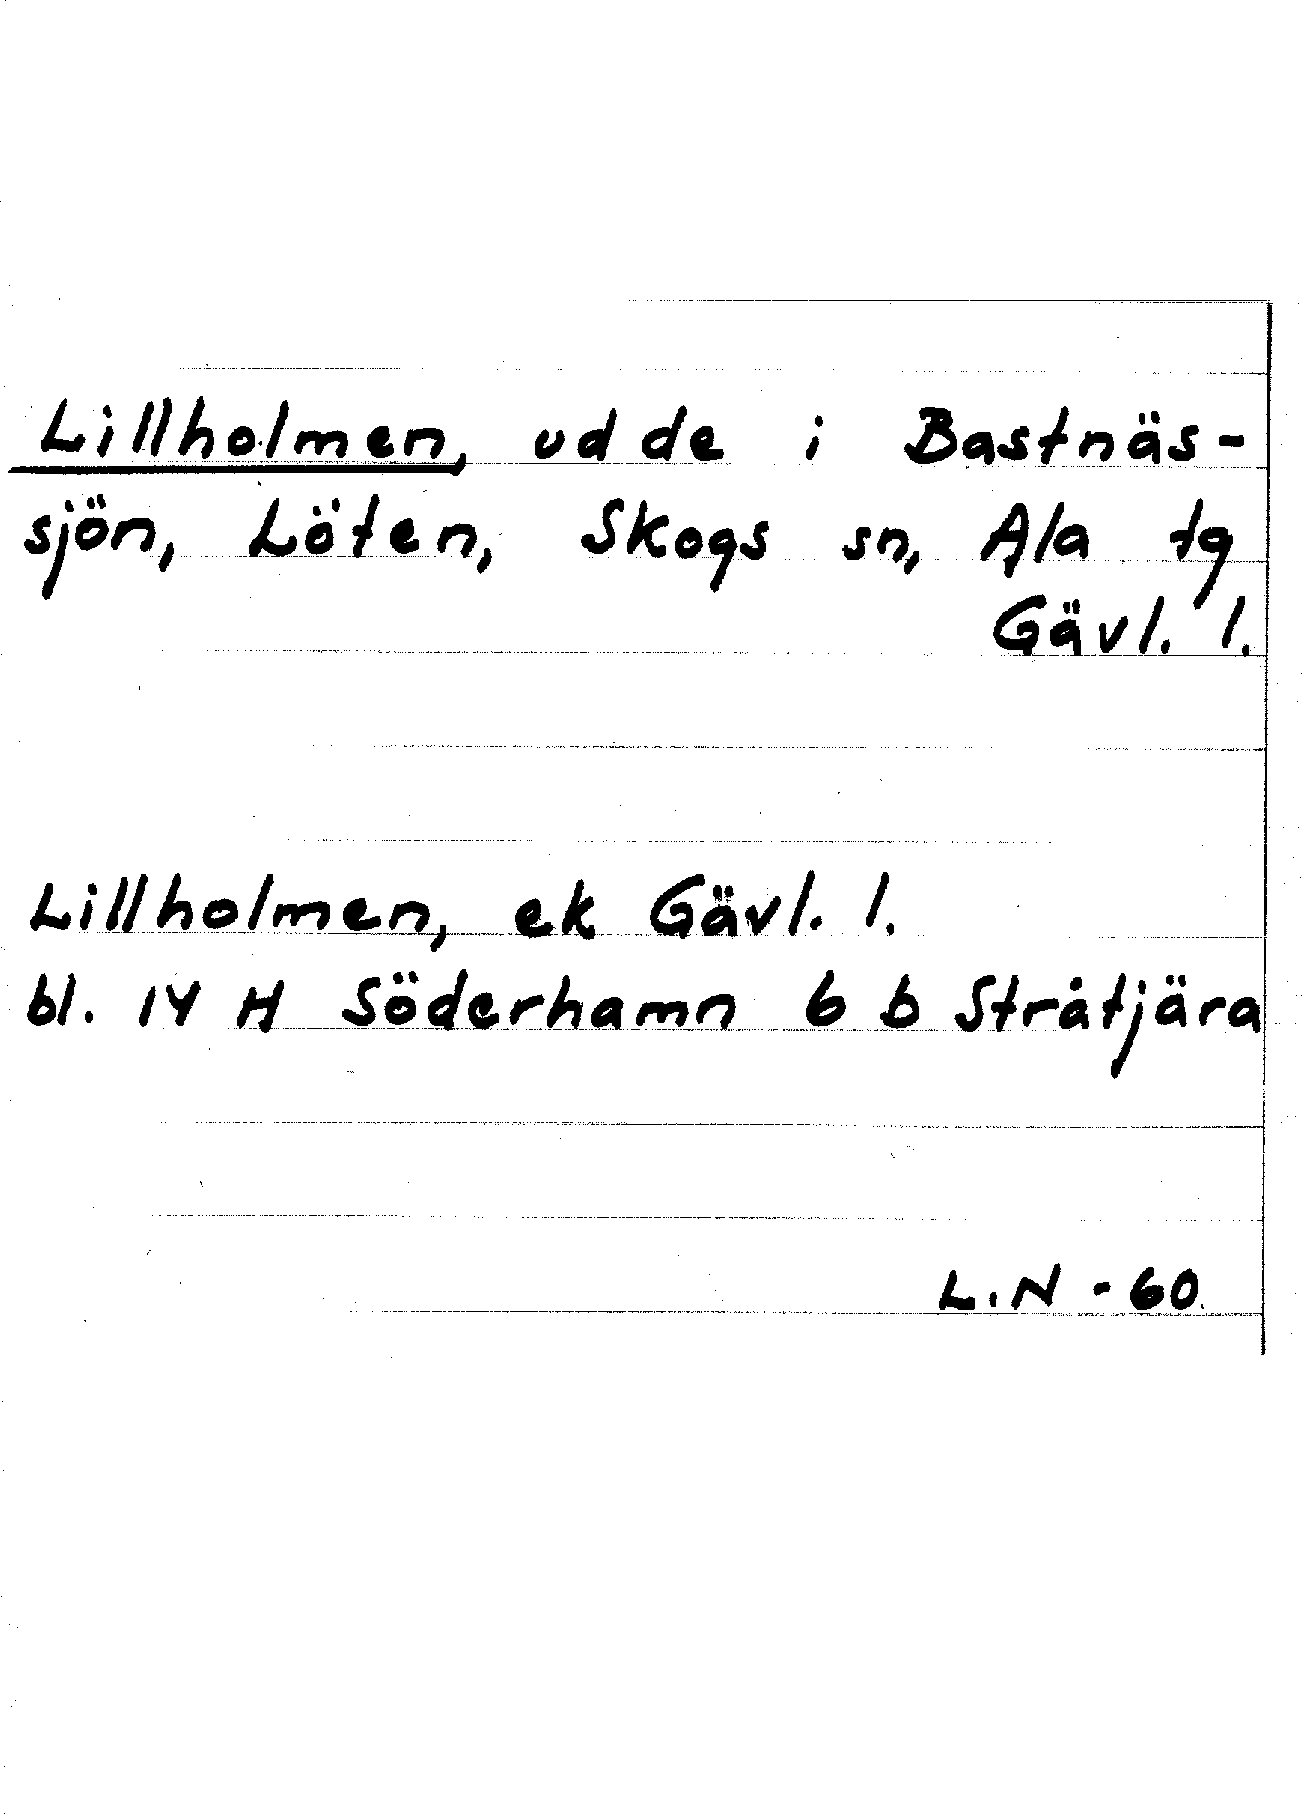 Lillholmen, udde i Bastnäs-
sjön, Löten, Skogs sn, Ala tg
Gävl. l.
Lillholmen, ek Gävl. l.
bl. 14 H Söderhamn 6 b Stråtjära
L.N - 60.